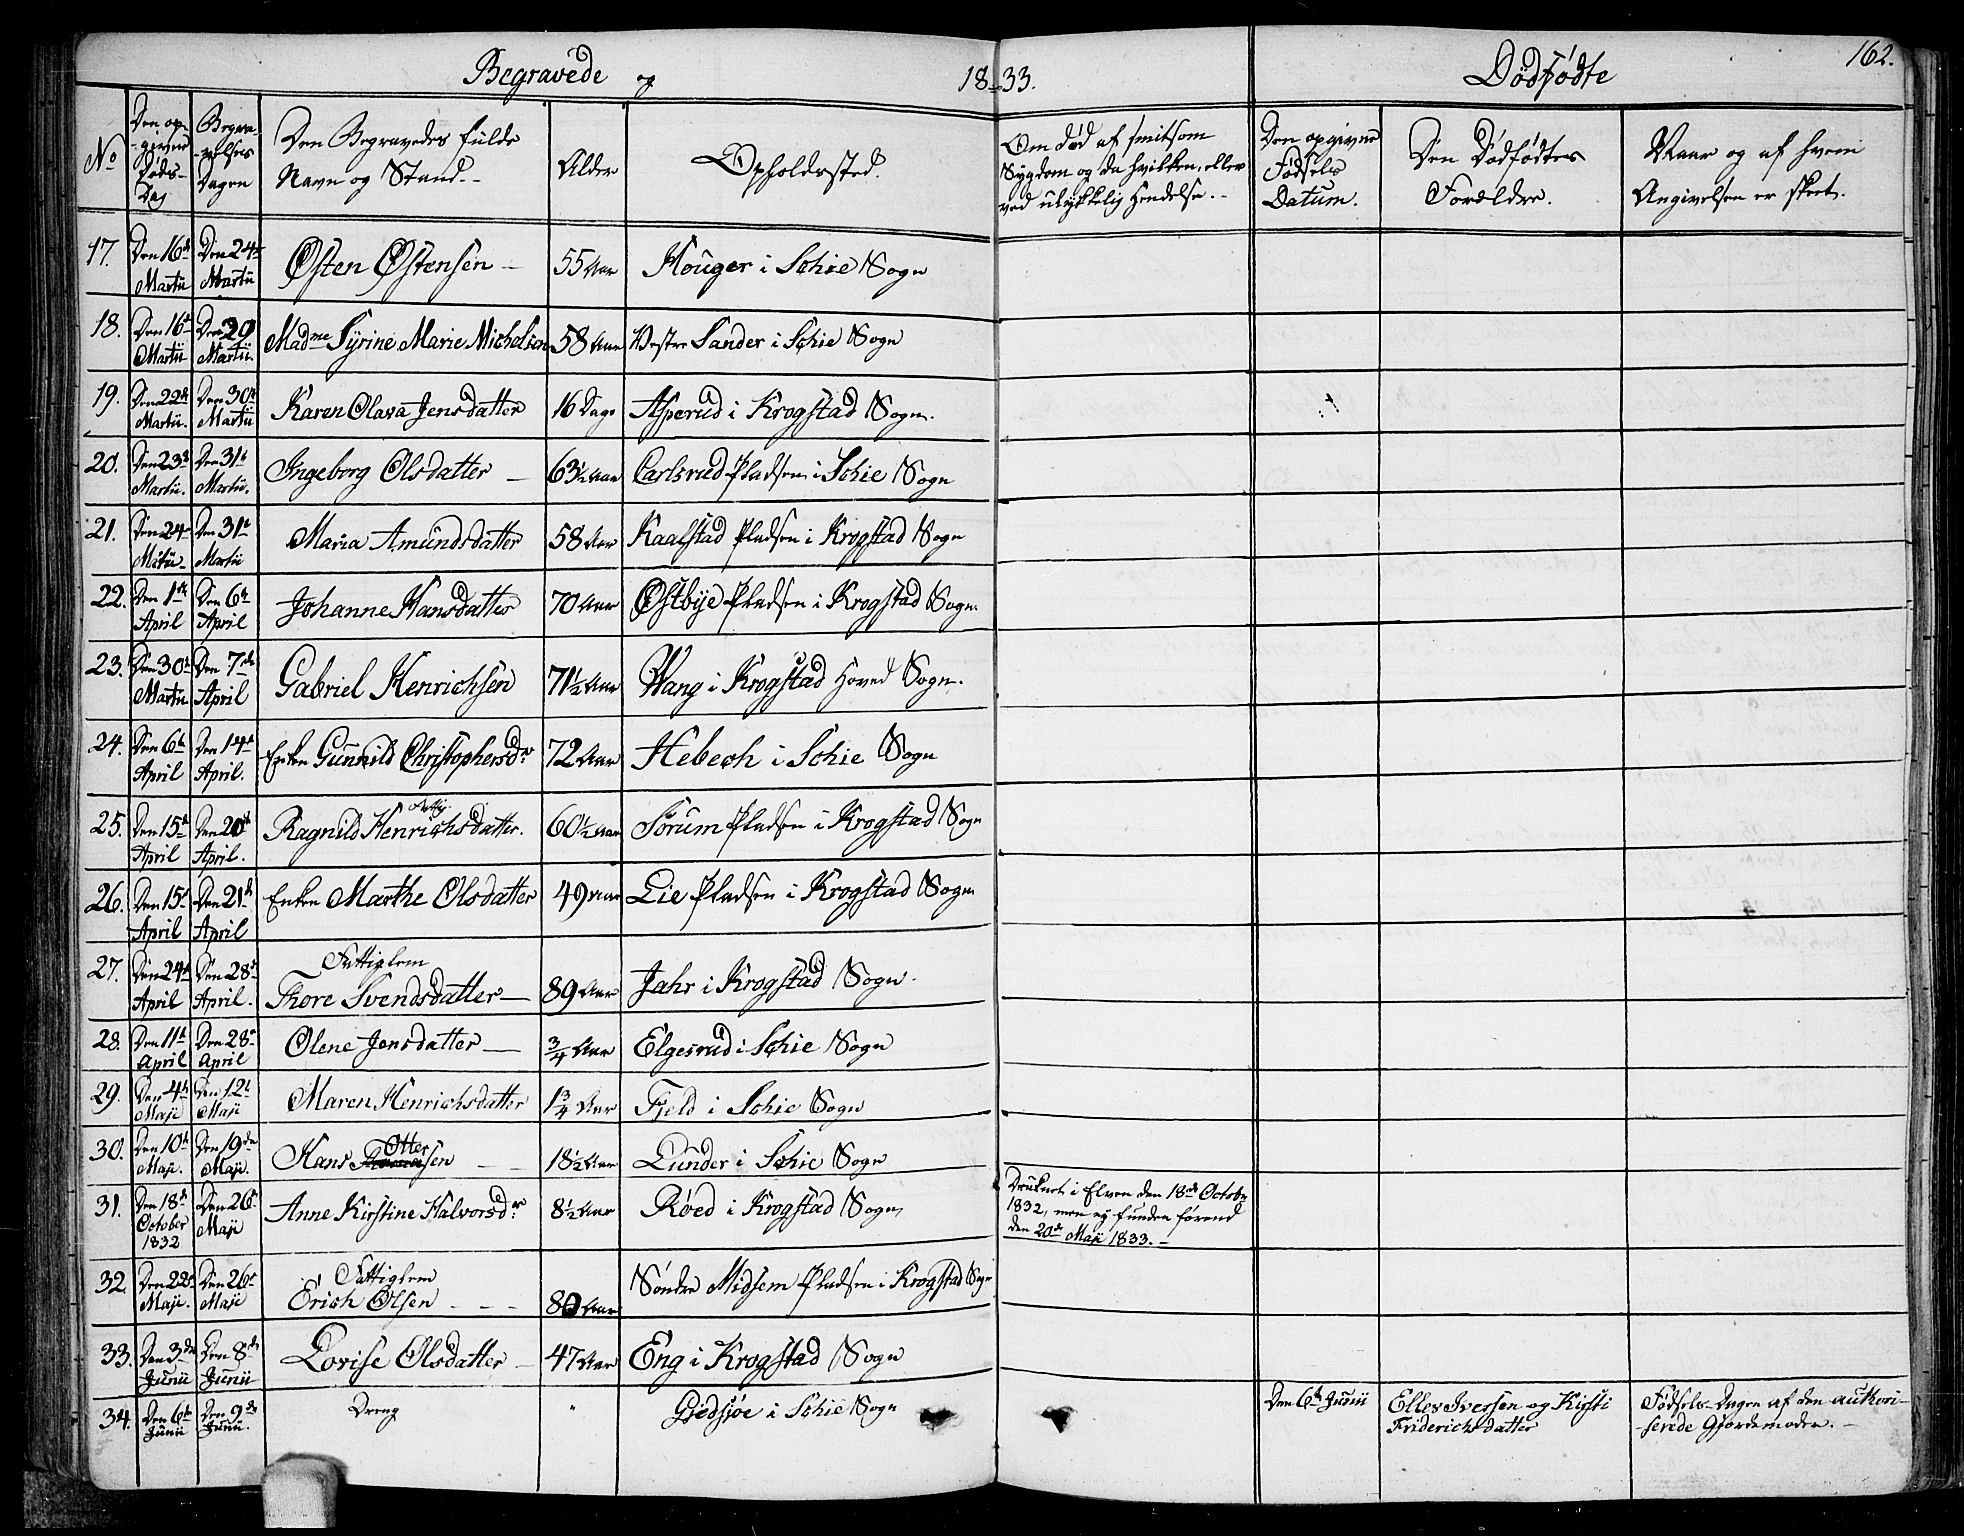 Begravede og 18-33. Dødfødte 162.
No
Den op-
-givne
Døds-
Dag
Begra-
-velses
Dagen
Den Begravedes fulde
Navn og Stand.-
Alder
Opholdssted.
Om død af smitsom
Sygdom og da hvilken, eller
ved ulykkelig Hendelse.-
Den opgivne
Fødsels
Datum.
Den Dødfødtes
Forældre.
Naar og af hvem
Angivelsen er skeet.
17. Den 16de Martii Den 24de Martii Østen Østensen - 55 Aar Houger i Schie Sogn
18. Den 16de Martii Den 20 Martii. Madme Syrine Marie Michelsen 58 Aar Vestre Sander i Schie Sogn
19. Den 22de Martii. Den 30te Martii Karen Olava Jensdatter 16 Dage Asperud i Krogstad Sogn.
20. Den 23de Martii. Den 31te Martii. Ingeborg Olsdatter - 63½ Aar Carlsrud Pladsen i Schie Sogn
21. Den 24de Mätii- Den 31te Martii Maria Amundsdatter 58 Aar Kaalstad Pladsen i Krogstad Sogn
22. Den 1ste April Den 6te April Johanne Hansdatter 70 Aar Østbye Pladsen i Krogstad Sogn.
23. Den 30te Martii Den 7de April Gabriel Henrichsen 71½ Aar Wang i Krogstad Hoved Sogn.
24. Den 6te April Den 14de April. Enken Gunnild Christophersdr 72 Aar Hebech i Schie Sogn
25. Den 15de April Den 20de April. Ragnild Henrichsdatter. 60½ Aar Sørum Pladsen i Krogstad Sogn
26. Den 15de April Den 21de April Enken Marthe Olsdatter 49 Aar Lie Pladsen i Krogstad Sogn
27. Den 24de April Den 28de April. Fattiglem
Thore Svendsdatter - 89 Aar Jahr i Krogstad Sogn.
28. Den 11te April Den 28de April Olene Jensdatter - ¾ Aar Elgesrud i Schie Sogn
29. Den 4de Maji Den 12te Maji Maren Henrichsdatter 1¾ Aar Fjeld i Schie Sogn
30. Den 10de Maji. Den 19de Maji. Hans Ottersen - - 18½ Aar Lunder i Schie Sogn
31. Den 18de October 1832 Den 26de Maji Anne Kirstine Halvorsdr 8½ Aar Røed i Krogstad Sogn
Druknet i Elven den 18de Octobr
1832, men ey funden førend
den 20de Maji 1833.-
32. Den 22de Maji. Den 26de Maji Fattiglem
Erich Olsen - - - 80 Aar Søndre Midsem Pladsen i Krogstad Sogn
33. Den 3die Junii Den 8de Junii Lovise Olsdatter - 47 Aar Eng i Krogstad Sogn
34. Den 6te Junii Den 9de Junii. Dreng " Gjedsjøe i Schie Sogn
Den 6te Junii
Elles Iversen og Kirsti
Friderichsdatter
Fødsels-Dagen af den authori-
-serede Gjordemoder.-